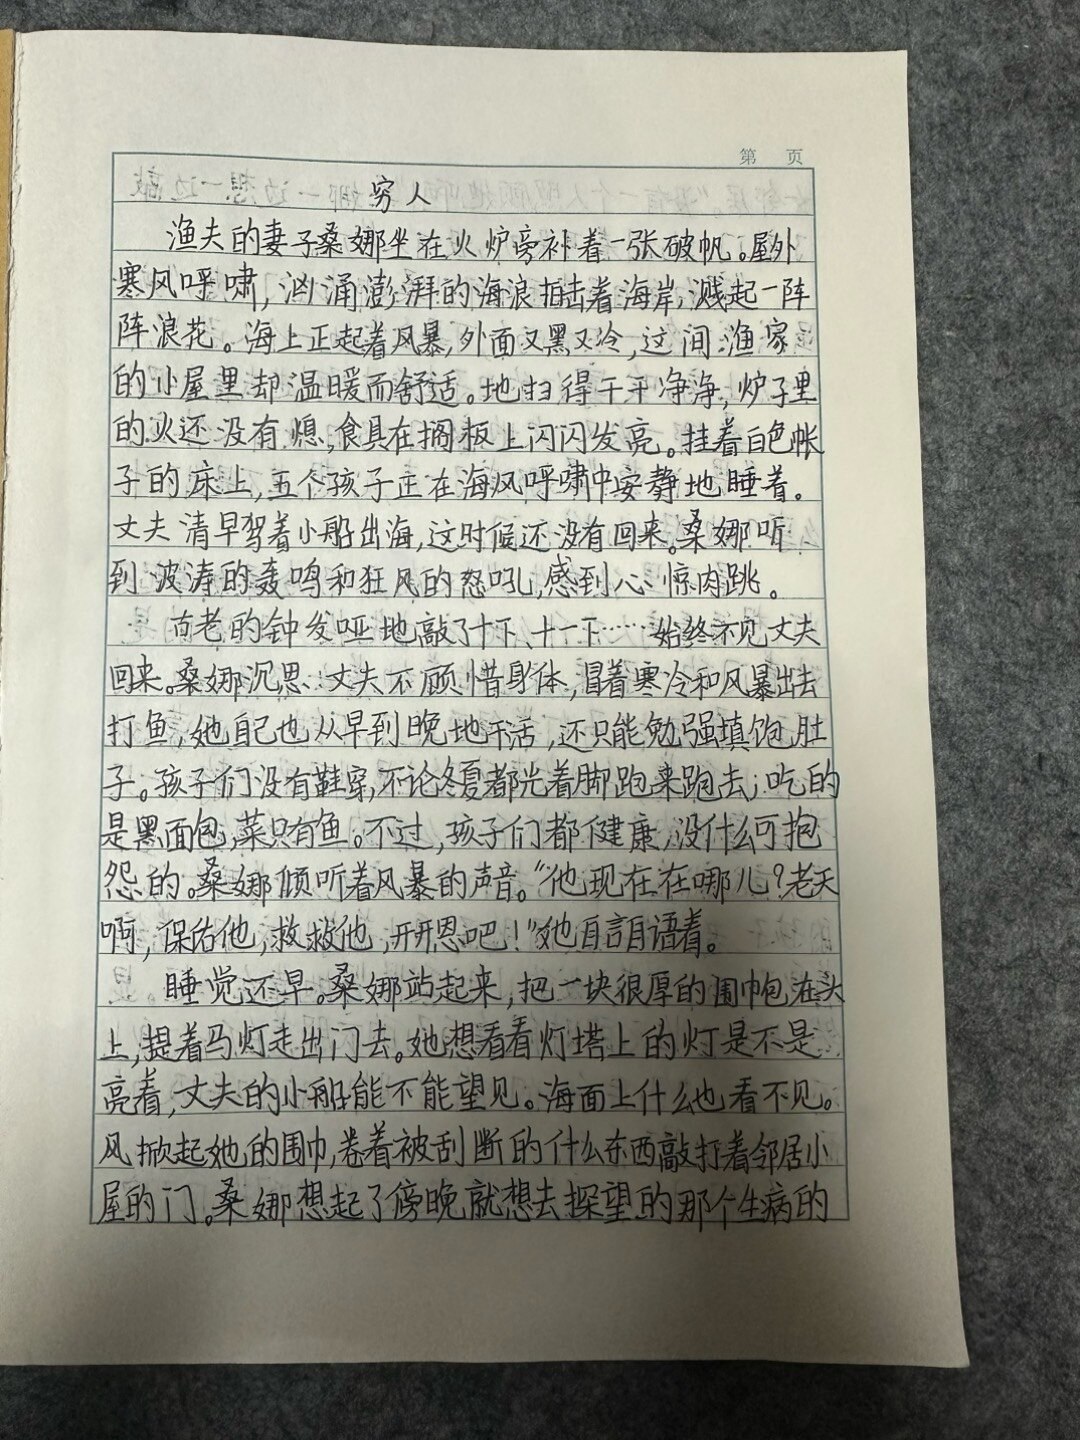 第 页
穷人
渔夫的妻子桑娜坐在火炉旁补着一张破帆。屋外
寒风呼啸,汹涌澎湃的海浪拍击着海岸,溅起一阵
阵浪花。海上正起着风暴,外面又黑又冷,这间渔家
的小屋里却温暖而舒适。地扫得干干净净,炉子里
的火还没有熄,食具在搁板上闪闪发亮。挂着白色帐
子的床上,五个孩子正在海风呼啸中安静地睡着。
丈夫清早驾着小船出海,这时候还没有回来。桑娜听
到波涛的轰鸣和狂风的怒吼,感到心惊肉跳。
古老的钟发哑地敲了十下、十一下……始终不见丈夫
回来。桑娜沉思:丈夫不顾惜身体,冒着寒冷和风暴出去
打鱼,她自己也从早到晚地干活,还只能勉强填饱肚
子。孩子们没有鞋穿,不论冬夏都光着脚跑来跑去;吃的
是黑面包,菜只有鱼。不过,孩子们都健康,没什么可抱
怨的。桑娜倾听着风暴的声音。“他现在在哪儿?老天
啊,保佑他,救救他,开开恩吧!”她自言自语着。
睡觉还早。桑娜站起来,把一块很厚的围巾包在头
上,提着马灯走出门去。她想看看灯塔上的灯是不是
亮着,丈夫的小船能不能望见。海面上什么也看不见。
风掀起她的围巾,卷着被刮断的什么东西敲打着邻居小
屋的门。桑娜想起了傍晚就想去探望的那个生病的